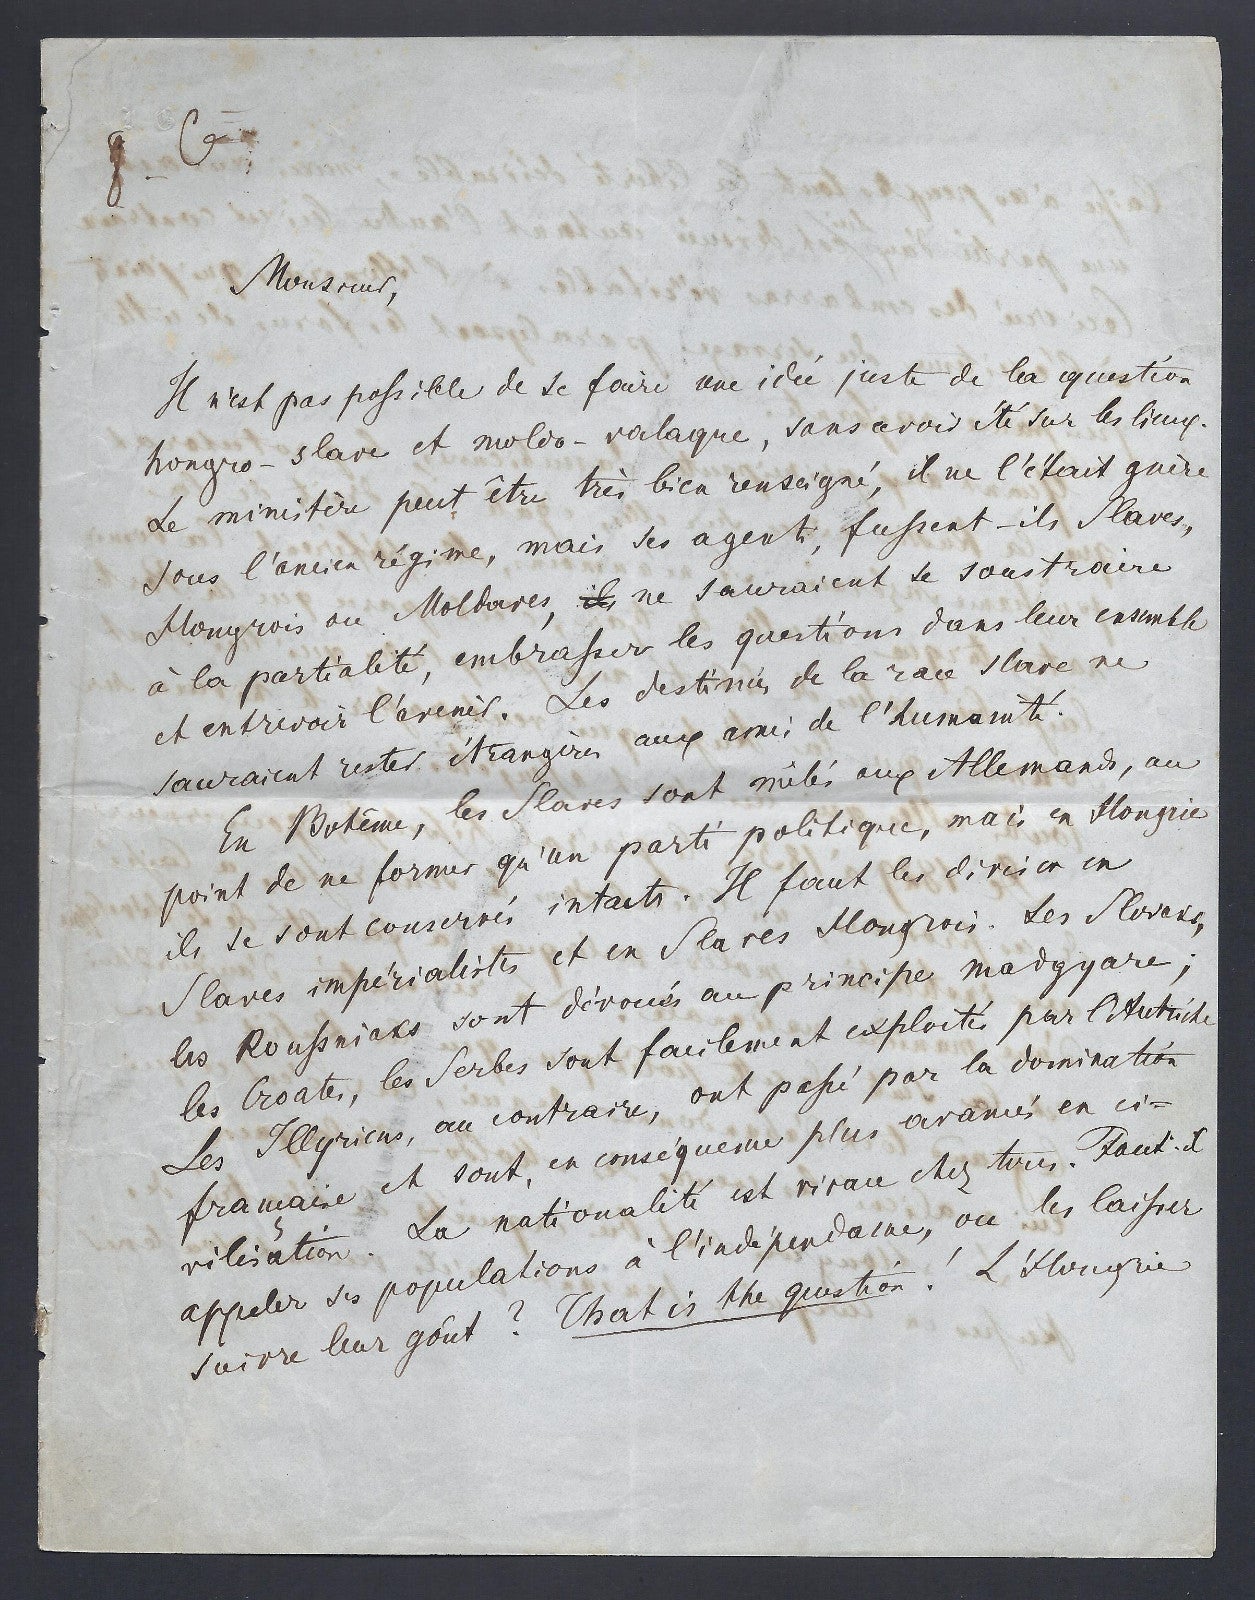 Monsieur,
Il n'est pas possible de se faire une idée juste de la question
hongro-slave et moldo-valaque, sans avoir été sur les lieux.
Le ministère peut être très bien renseigné, il ne l'était guère
sous l'ancien régime, mais ses agents, fussent-ils Slaves,
Hongrois ou Moldaves, ils ne sauraient se soustraire
à la partialité, embrasser les questions dans leur ensemble
et entrevoir l'avenir. Les destinées de la race slave ne
sauraient rester étrangères aux amis de l'humanité.
En Bohême, les Slaves sont mêlés aux Allemands, au
point de ne former qu'un parti politique, mais en Hongrie
ils se sont conservés intacts. Il faut les diviser en
Slaves impérialistes et en Slaves Hongrois. Les Slovaks,
les Roussniaks sont dévoués au principe madgyare;
les Croates, les Serbes sont facilement exploités par l'Autriche
Les Illyriens, au contraire, ont passé par la domination
française et sont, en conséquence plus avancés en ci=
vilisation. La nationalité est vivace chez tous. Faut-il
appeler ses populations à l'indépendance, ou les laisser
suivre leur goût? That is the question! L'Hongrie